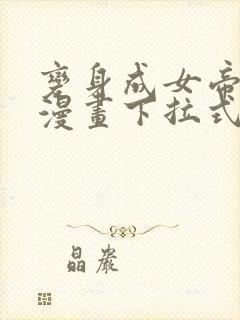 变身成女帝
漫畫下拉式
晶嚴